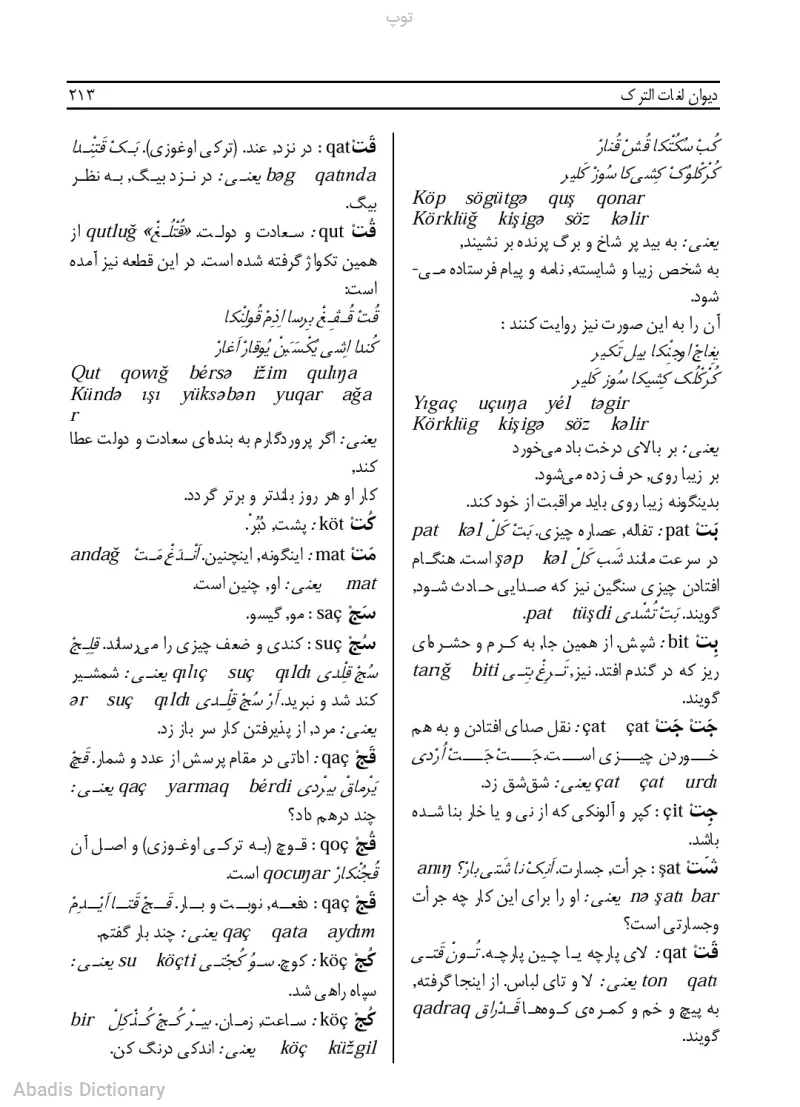 توپ
دیوان لغات الترک
۲۱۳
کُبْ سُکُتْکا قُشْ قُنارْ
کُرْکْلوُکْ کِشی‌کا سُوزْ کَلیر
Köp sögütgə quş qonar
Körklüğ kişigə söz kəlir
یعنی: به بید پر شاخ و برگ پرنده بر نشیند,
به شخص زیبا و شایسته, نامه و پیام فرستاده مـی-
شود.
آن را به این صورت نیز روایت کنند :
یِغاجْ اوجنِکا ییل تَکیر
کُرْکْلُک کِشیکا سُوز کَلیر
Yıgaç uçuŋa yél təgir
Körklüg kişigə söz kəlir
یعنی: بر بالای درخت باد می‌خورد
بر زیبا روی, حرف زده می‌شود.
بدینگونه زیبا روی باید مراقبت از خود کند.
بَتْ pat : تفاله, عصاره چیزی. بَتْ کَلْ pat kəl
در سرعت مانند شَب کَلْ şəp kəl است. هنگـام
افتادن چیزی سنگین نیز که صـدایی حـادث شـود,
گویند. بَتْ تُشْدی pat tüşdi.
بِتْ bit : شپش. از همین جا, به کـرم و حشـره‌ای
ریز که در گندم افتد. نیز, تَـرِغْ بِتِـی tarığ biti
گویند.
جَتْ جَتْ çat çat : نقل صدای افتادن و به هم
خـــوردن چیـــزی اســـت. جَـــتْ جَـــتْ اُرْدی
çat çat urdı یعنی: شق‌شق زد.
جِتْ çit : کپر و آلونکی که از نی و یا خار بنا شـده
باشد.
شَتْ şat : جرأت, جسارت. اَنِکْ نا شَتی بارْ؟ anıŋ
nə şatı bar یعنی: او را برای این کار چه جرأت
وجسارتی است؟
قَتْ qat : لای پارچه یـا چـین پارچـه. تُـونْ قَتـی
ton qatı یعنی: لا و تای لباس. از اینجا گرفته,
به پیچ و خم و کمـره‌ی کـوه‌هـا قَـدْراق qadraq
گویند.
قَتْ qat : در نزد, عند. (ترکی اوغوزی). بَـکْ قَتِنْـدا
bəg qatında یعنـی: در نـزد بیـگ, بـه نظـر
بیگ.
قُتْ qut : سـعادت و دولـت. «قُتْلُـغْ» qutluğ از
همین تکواژ گرفته شده است. در این قطعه نیز آمده
است:
قُتْ قُـفِـغْ بِرسا اِذِمْ قُولِنْکا
کُندا اِشی یُکْسَبَنْ یُوقارْ آغارْ
Qut qowığ bérsə ižim qulıŋa
Kündə ışı yüksəbən yuqar ağa
r
یعنی: اگر پروردگارم به بنده‌ای سعادت و دولت عطا
کند,
کار او هر روز بلندتر و برتر گردد.
کُتْ köt : پشت, دُبُرْ.
مَتْ mat : اینگونه, اینچنین. اَنْـدَغْ مَـتْ andağ
mat یعنی: او, چنین است.
سَجْ saç : مو, گیسو.
سُجْ suç : کندی و ضعف چیزی را می‌رساند. قِلِـجْ
سُجْ قِلْدی qılıç suç qıldı یعنـی: شمشـیر
کند شد و نبرید. اَرْ سُجْ قِلْـدی ər suç qıldı
یعنی: مرد, از پذیرفتن کار سر باز زد.
قَجْ qaç : اداتی در مقام پرسش از عدد و شمار. قَجْ
یَرْماقْ بیرْدی qaç yarmaq bérdi یعنـی:
چند درهم داد؟
قُجْ qoç : قـوچ (بـه ترکـی اوغـوزی) و اصـل آن
قُجُنْکارْ qocuŋar است.
قَجْ qaç : دفعـه, نوبـت و بـار. قَـجْ قَتـا اَیْـدِمْ
qaç qata aydım یعنی: چند بار گفتم.
کُجْ köç : کوچ. سـوُ کُجْتـی su köçti یعنـی:
سپاه راهی شد.
کُجْ köç : سـاعت, زمـان. بیـرْ کُـجْ کُـذْکِلْ bir
köç küžgil یعنی: اندکی درنگ کن.
Abadis Dictionary